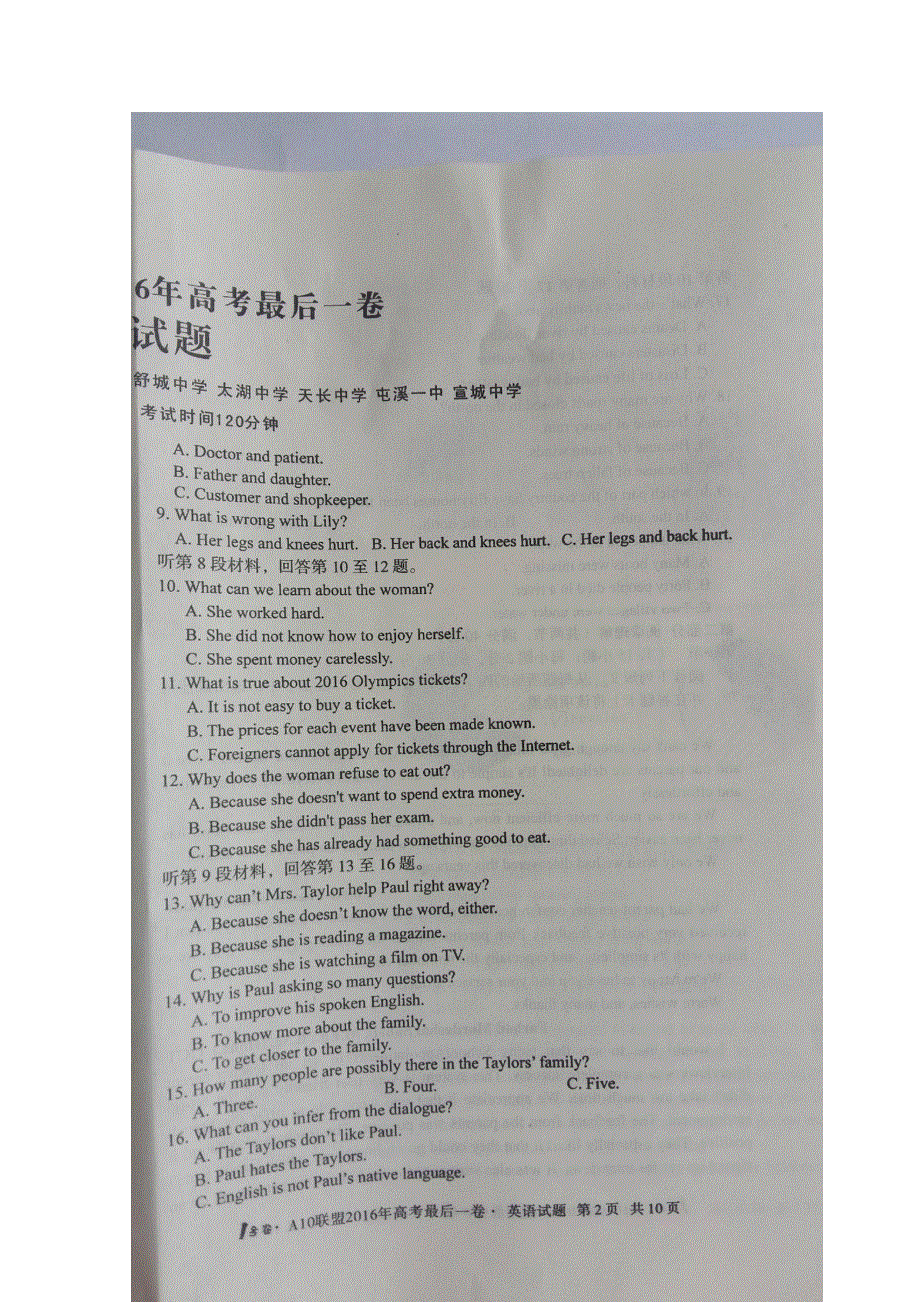 6年高考最后一卷
试题
舒城中学 太湖中学 天长中学 屯溪一中 宣城中学
考试时间120分钟
A. Doctor and patient.
B. Father and daughter.
C. Customer and shopkeeper.
9. What is wrong with Lily?
A. Her legs and knees hurt. B. Her back and knees hurt. C. Her legs and back hurt.
听第 8 段材料，回答第 10 至 12 题。
10. What can we learn about the woman?
A. She worked hard.
B. She did not know how to enjoy herself.
C. She spent money carelessly.
11. What is true about 2016 Olympics tickets?
A. It is not easy to buy a ticket.
B. The prices for each event have been made known.
C. Foreigners cannot apply for tickets through the Internet.
12. Why does the woman refuse to eat out?
A. Because she doesn't want to spend extra money.
B. Because she didn't pass her exam.
C. Because she has already had something good to eat.
听第 9 段材料，回答第 13 至 16 题。
13. Why can't Mrs. Taylor help Paul right away?
A. Because she doesn't know the word, either.
B. Because she is reading a magazine.
C. Because she is watching a film on TV.
14. Why is Paul asking so many questions?
A. To improve his spoken English.
B. To know more about the family.
C. To get closer to the family.
15. How many people are possibly there in the Taylors' family?
A. Three. B. Four. C. Five.
16. What can you infer from the dialogue?
A. The Taylors don't like Paul.
B. Paul hates the Taylors.
C. English is not Paul's native language.
1号卷·A10联盟2016年高考最后一卷· 英语试题 第 2 页 共 10 页